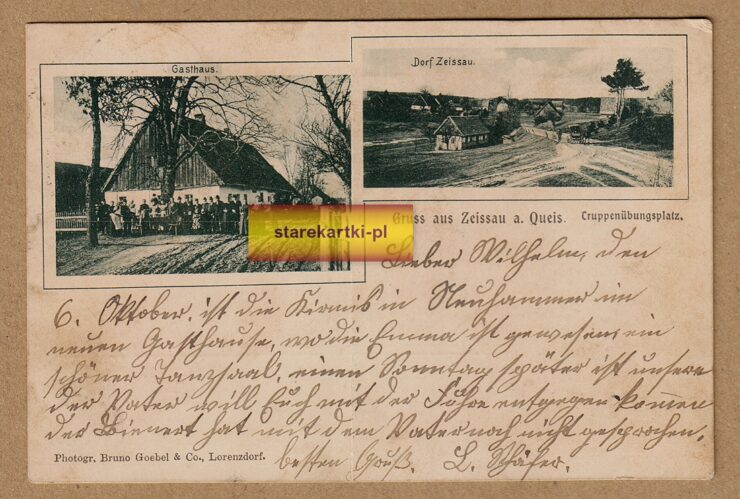 Gasthaus.
Dorf Zeissau.
Gruss aus Zeissau a. Queis. Truppenübungsplatz.
starekartki-pl
Lieber Wilhelm, den
6. Oktober, ist die Kirmis in Neuhammer im
neuen Gasthause, wo die Emma ist gewesen, ein
schöner Tanzsaal, einen Sonntag später ist unsere
der Vater will Euch mit der Fuhre entgegen kommen
der Bienert hat mit dem Vater noch nicht gesprochen.
besten Gruß. L. Schäfer.
Photogr. Bruno Goebel & Co., Lorenzdorf.